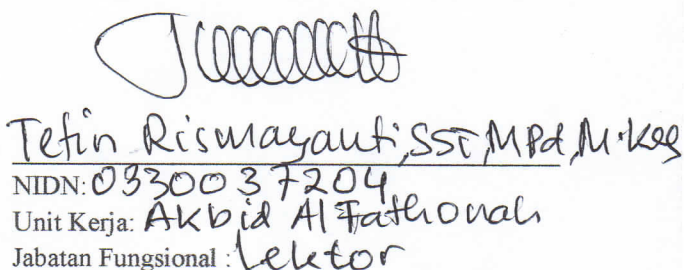 Tetin Rismayanti, SST, MPd, M.Kes
NIDN: 0330037204
Unit Kerja: Akbid Al Fathonah
Jabatan Fungsional : Lektor